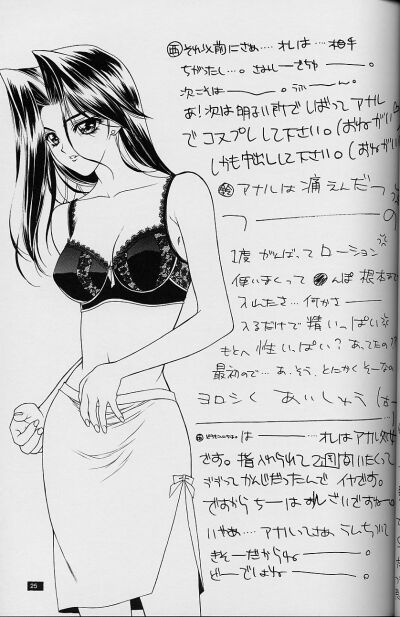 西 それ以前にさぁ…オレは…相手
ちがったし…。さみしーさちゅ——。
次こそは——。うふ——ん。
あ!次は明るい所でしばってアナル
でコスプレして下さい。(おねがい
しかも中出しして下さい。(おねがい
アナルは痛えんだっ
つ——の
1度がんばってローション
使いまくって ●んぽ根本まで
入れたさ…何かさ——
入るだけで精いっぱい
もとへ性いっぱい?あってたの?
最初ので…あ、そう、とにかくそーなの
ヨロシく あいしょう
は——オレはアナル処女
です。指入れられて2週間いたくて
ってかんじだったんで イヤです。
ですから ちーは
いやぁ…アナルってさぁ うんちがで
きそーだからね——。
どーでしょね——。
25